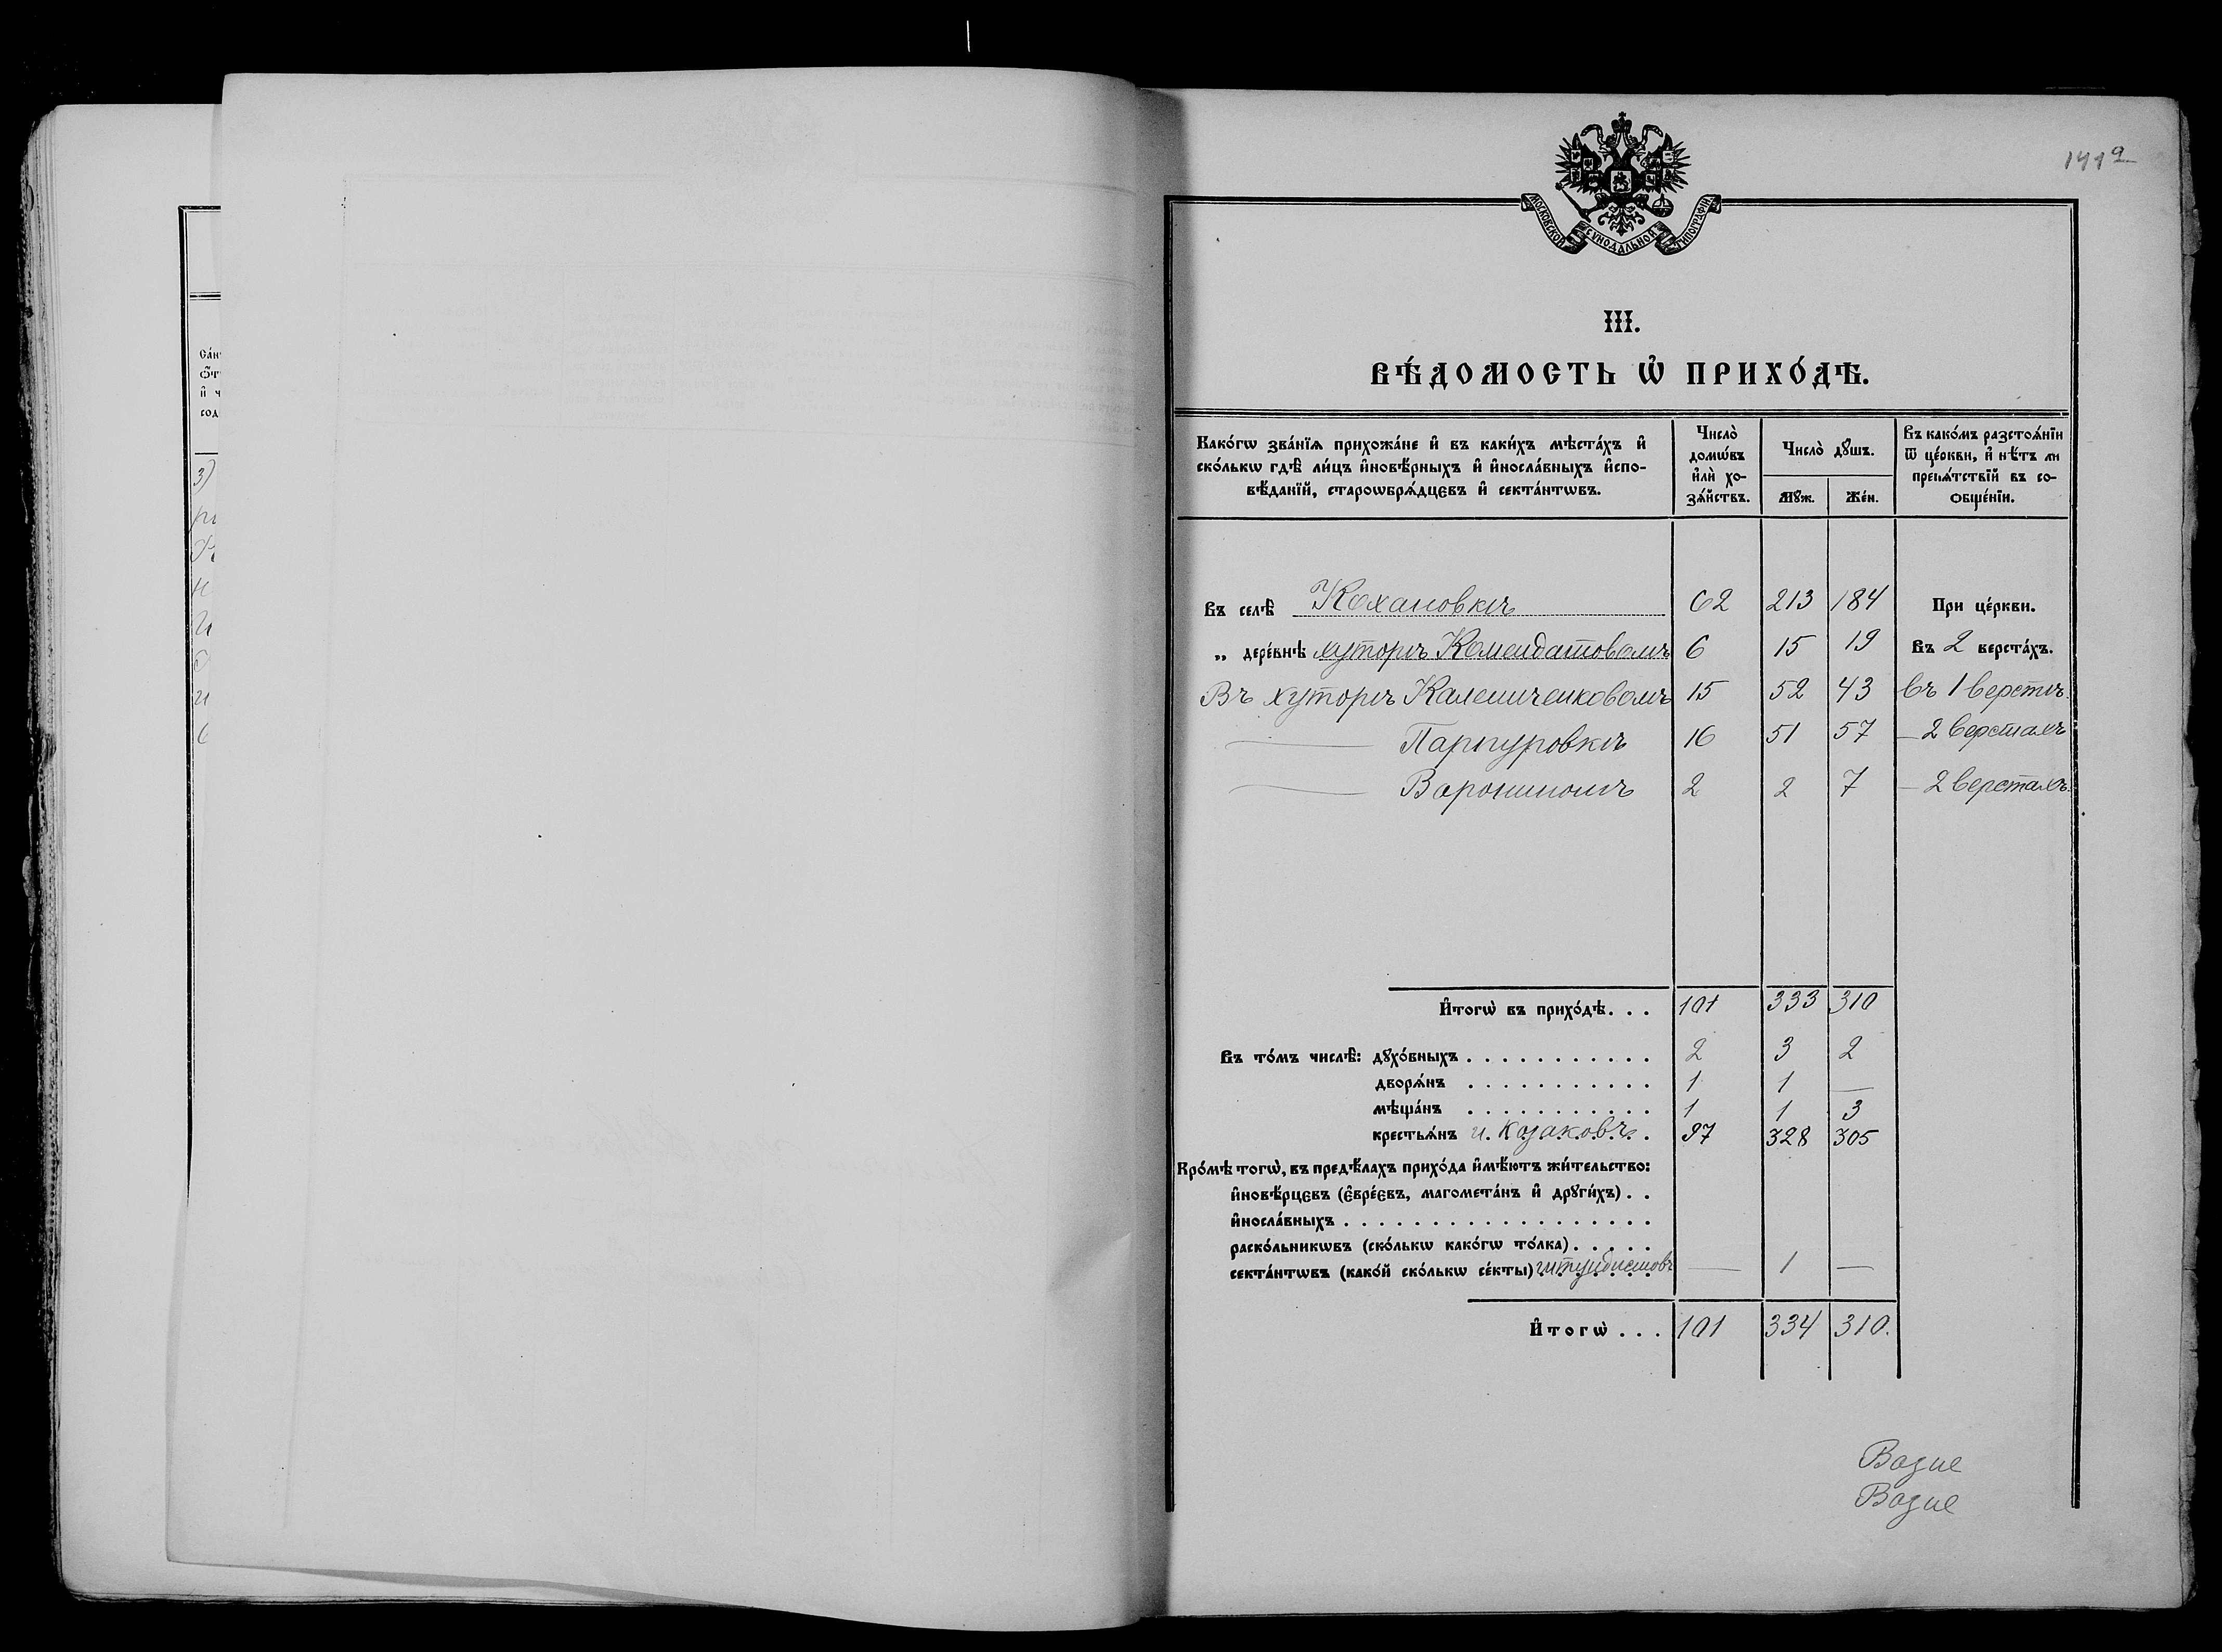 Са́н
ѿт
и҆ ч
сод
3)
ри
н
и
1112
МОСКОВСКОЙ СѴНОДАЛЬНОЙ ТИПОГРАФІИ
III.
ВѢ́ДОМОСТЬ Ѡ҆ ПРИХО́ДѢ.
Како́гѡ зва́нїѧ прихожа́не и҆ въ каки́хъ мѣста́хъ и҆
ско́лькѡ гдѣ̀ ли́цъ и҆новѣ́рныхъ и҆ и҆носла́вныхъ и҆спо-
вѣ́данїй, староѡбрѧ́дцевъ и҆ секта́нтѡвъ.
Число̀
домѡ́въ
и҆лѝ хо-
зѧ́йствъ.
Число̀ дꙋ́шъ.
Мꙋ́ж. Же́н.
Въ како́мъ разстоѧ́нїи
ѿ це́ркви, и҆ нѣ́тъ ли
препѧ́тствїй въ со-
ѻбще́нїи.
Въ селѣ̀ Кохановкѣ 62 213 184 При це́ркви.
„ дере́внѣ хуторѣ Комендатовомъ 6 15 19 Въ 2 верста́хъ.
Въ хуторѣ Калениченковомъ 15 52 43 въ 1 верстѣ.
— Парпуровкѣ 16 51 57 — 2 верстахъ
— Воронином 2 2 7 — 2 верстахъ.
И҆тогѡ̀ въ прихо́дѣ. . . 101 333 310
Въ то́мъ числѣ̀: дꙋхо́вныхъ . . . . . . . . . . . 2 3 2
дворѧ́нъ . . . . . . . . . . . 1 1 —
мѣща́нъ . . . . . . . . . . . 1 1 3
крестьѧ́нъ и козаковъ. 97 328 305
Кро́мѣ тогѡ̀, въ предѣ́лахъ прихо́да и҆мѣ́ютъ жи́тельство:
и҆новѣ́рцевъ (є҆вре́євъ, магомета́нъ и҆ дрꙋги́хъ) . .
и҆носла́вныхъ . . . . . . . . . . . . . . . . . .
раско́льникѡвъ (ско́лькѡ како́гѡ то́лка) . . . . .
секта́нтѡвъ (како́й ско́лькѡ се́кты) штундистовъ — 1 —
И҆тогѡ̀ . . . 101 334 310.
Возне
Возне